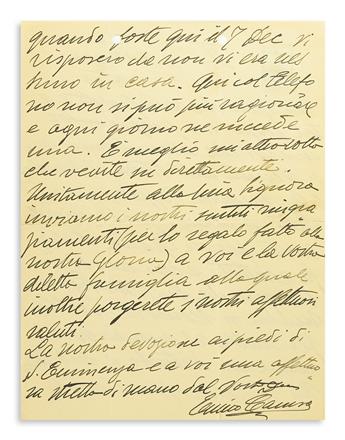 quando foste qui il 7 Dec vi
risposero che non vi era nes
suno in casa. Qui col telefo
no non si può più ragionare
e ogni giorno ne succede
una. È meglio un'altra volta
che venite su direttamente.
Unitamente alla mia Signora
inviamo i nostri sentiti ringra
ziamenti (per lo regalo fatto alla
nostra Gloria) a voi e la vostra
diletta famiglia alla quale
inoltre porgerete i nostri affettuosi
saluti.
La nostra devozione ai piedi di
S. Eminenza e a voi una affettuo
sa stretta di mano dal Vostro
Enrico Caruso